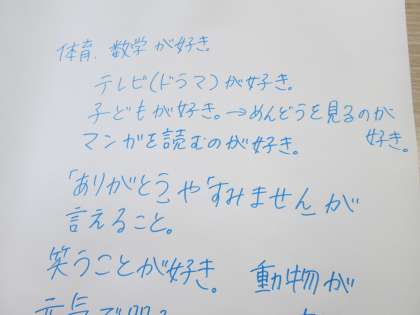 体育、数学が好き。
テレビ(ドラマ)が好き。
子どもが好き。→めんどうを見るのが
好き。
マンガを読むのが好き。
「ありがとう」や「すみません」が
言えること。
笑うことが好き。 動物が
元気で明